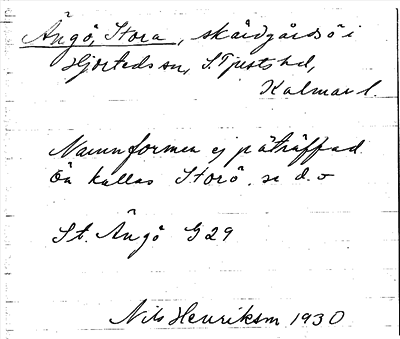 Ängö, Stora, skärgårdsö i
Hjorteds sn, S. Tjusts hd,
Kalmar l.
Namnformen ej påträffad.
Ön kallas Storö, se d. o
St. Ängö G29
Nils Henriksson 1930